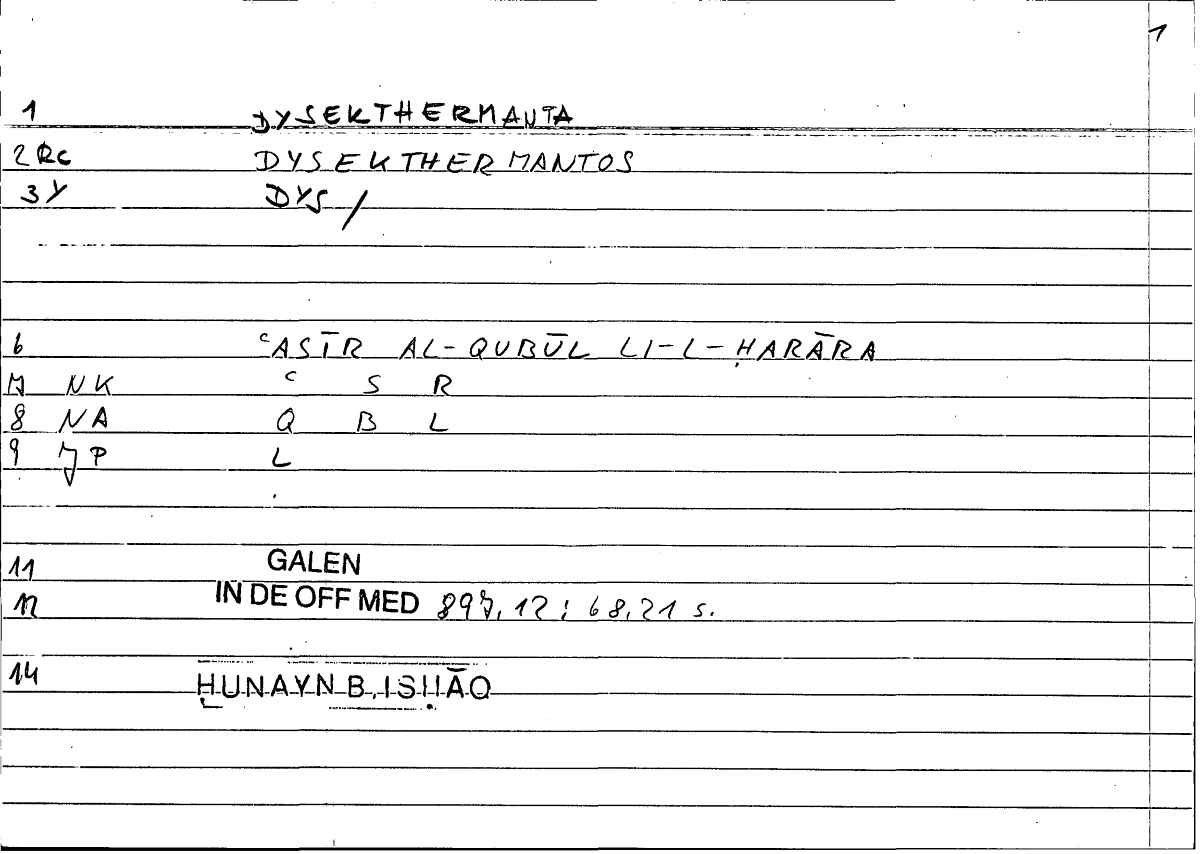 1
1 DYSEKTHERMANTA
2 RC DYSEKTHERMANTOS
3 Y DYS /
6 ʿASĪR AL-QUBŪL LI-L-ḤARĀRA
7 NK ʿ S R
8 NA Q B L
9 JP L
11 GALEN
12 IN DE OFF MED 897,12 ; 68,21 s.
14 ḤUNAYN B. ISḤĀQ